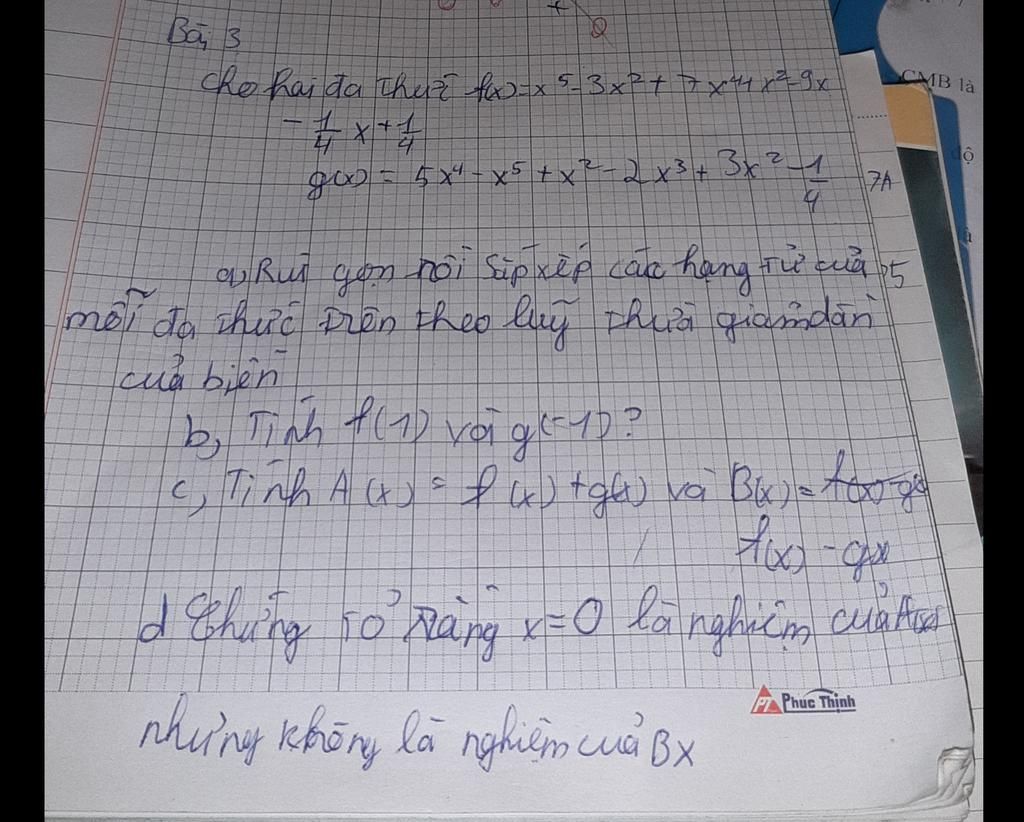 Bài 3
Cho hai đa thức f(x) = x⁵ - 3x² + 7x⁴ + x² - 9x
- 1/4 x + 1/4
g(x) = 5x⁴ - x⁵ + x² - 2x³ + 3x² - 1/4
a, Rút gọn rồi sắp xếp các hạng tử của
mỗi đa thức trên theo luỹ thừa giảm dần
của biến
b, Tính f(1) và g(-1)?
c, Tính A(x) = f(x) + g(x) và B(x) =
f(x) - gx
d Chứng tỏ rằng x = 0 là nghiệm của A(x)
nhưng không là nghiệm của Bx
Phuc Thịnh
CMB là
độ
7A